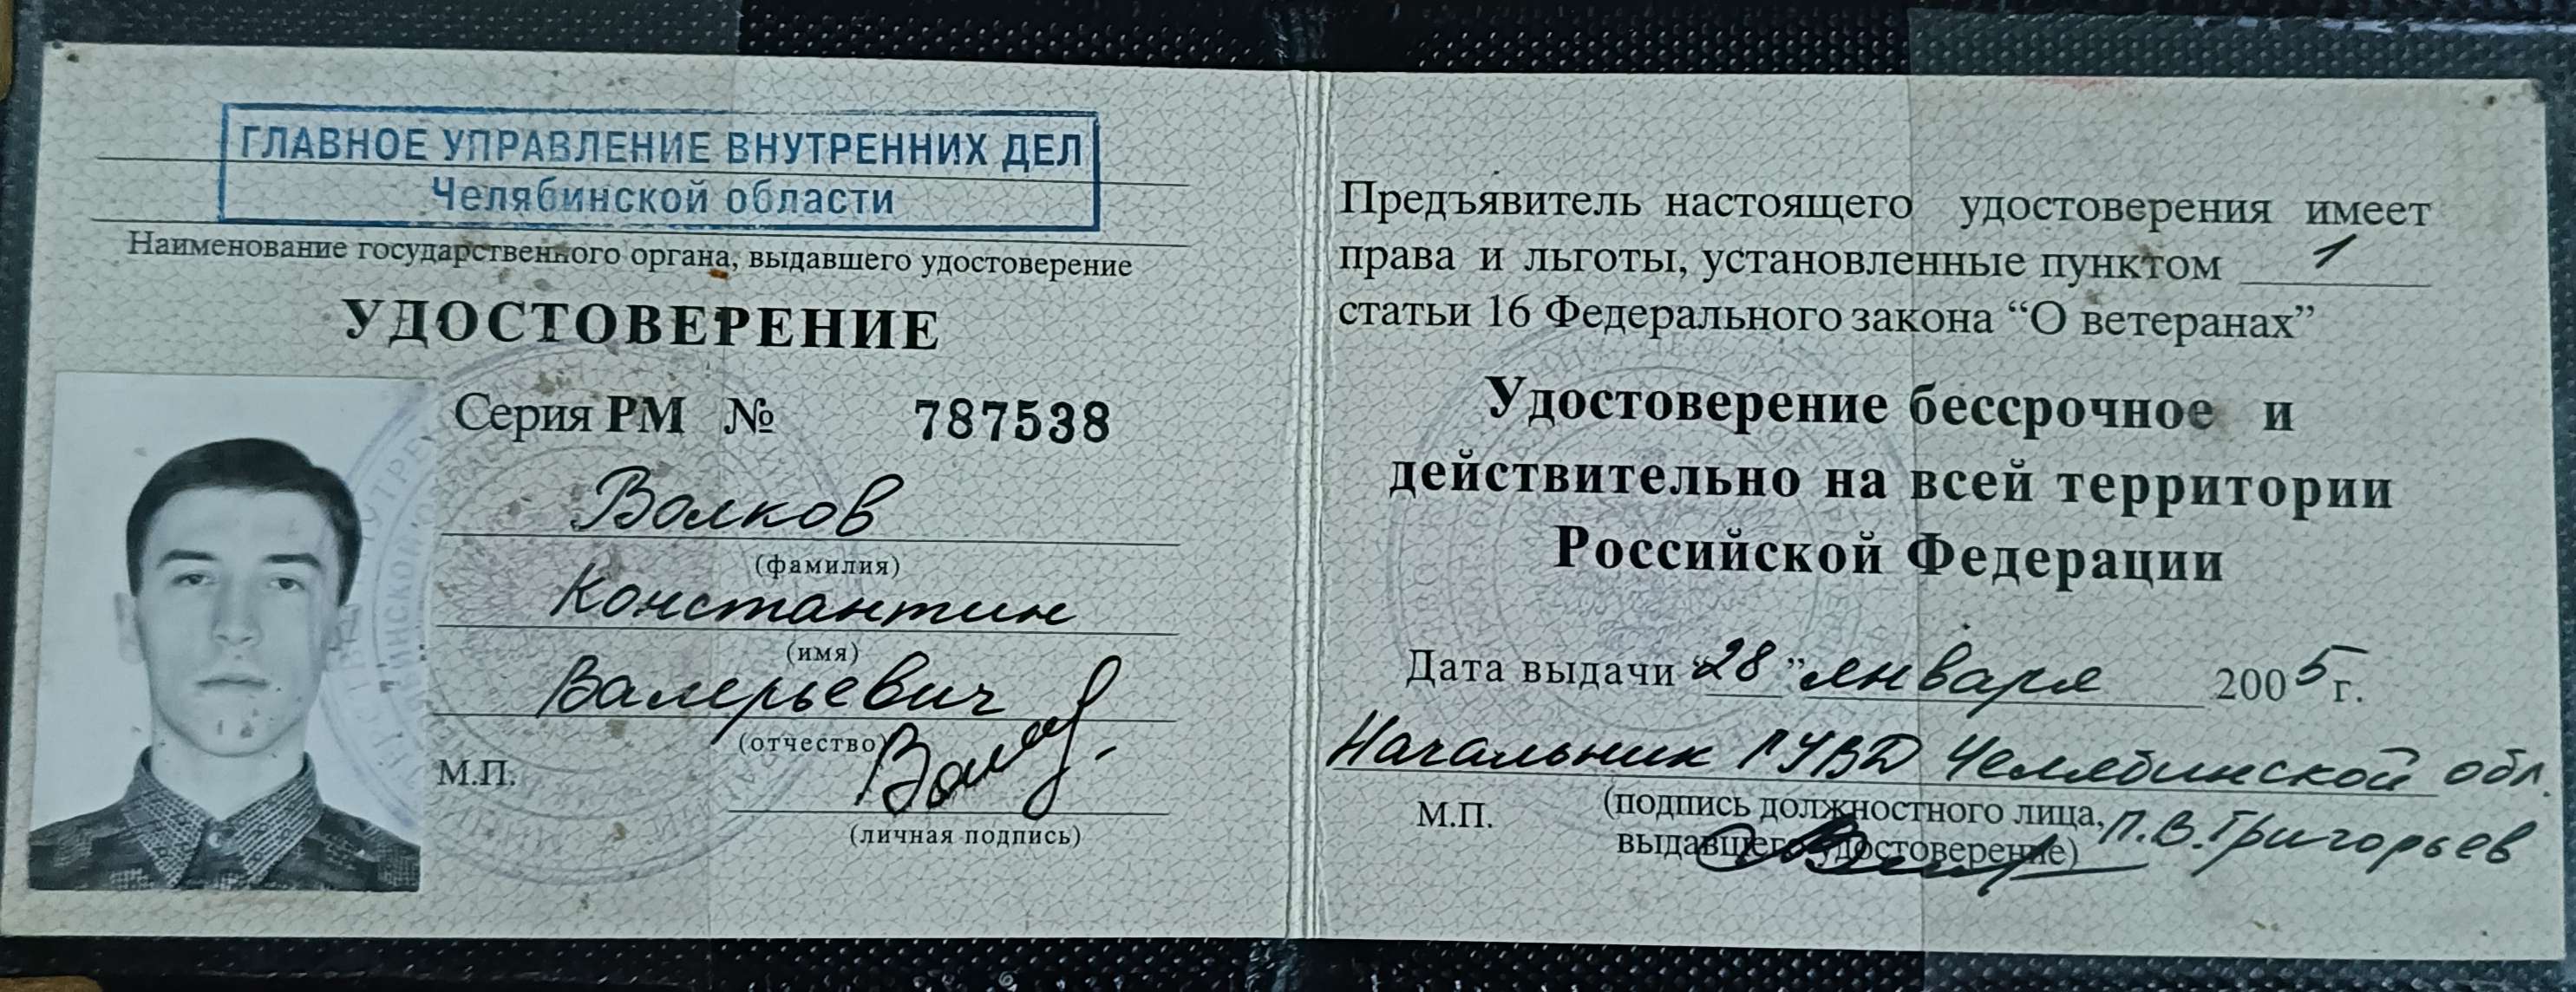 ГЛАВНОЕ УПРАВЛЕНИЕ ВНУТРЕННИХ ДЕЛ
Челябинской области
Наименование государственного органа, выдавшего удостоверение
УДОСТОВЕРЕНИЕ
Серия РМ № 787538
Волков
(фамилия)
Константин
(имя)
Валерьевич
(отчество)
М.П.
(личная подпись)
Предъявитель настоящего удостоверения имеет
права и льготы, установленные пунктом 1
статьи 16 Федерального закона “О ветеранах”
Удостоверение бессрочное и
действительно на всей территории
Российской Федерации
Дата выдачи “28” января 2005 г.
Начальник ГУВД Челябинской обл.
М.П. (подпись должностного лица, П.В. Григорьев
выдавшего удостоверение)